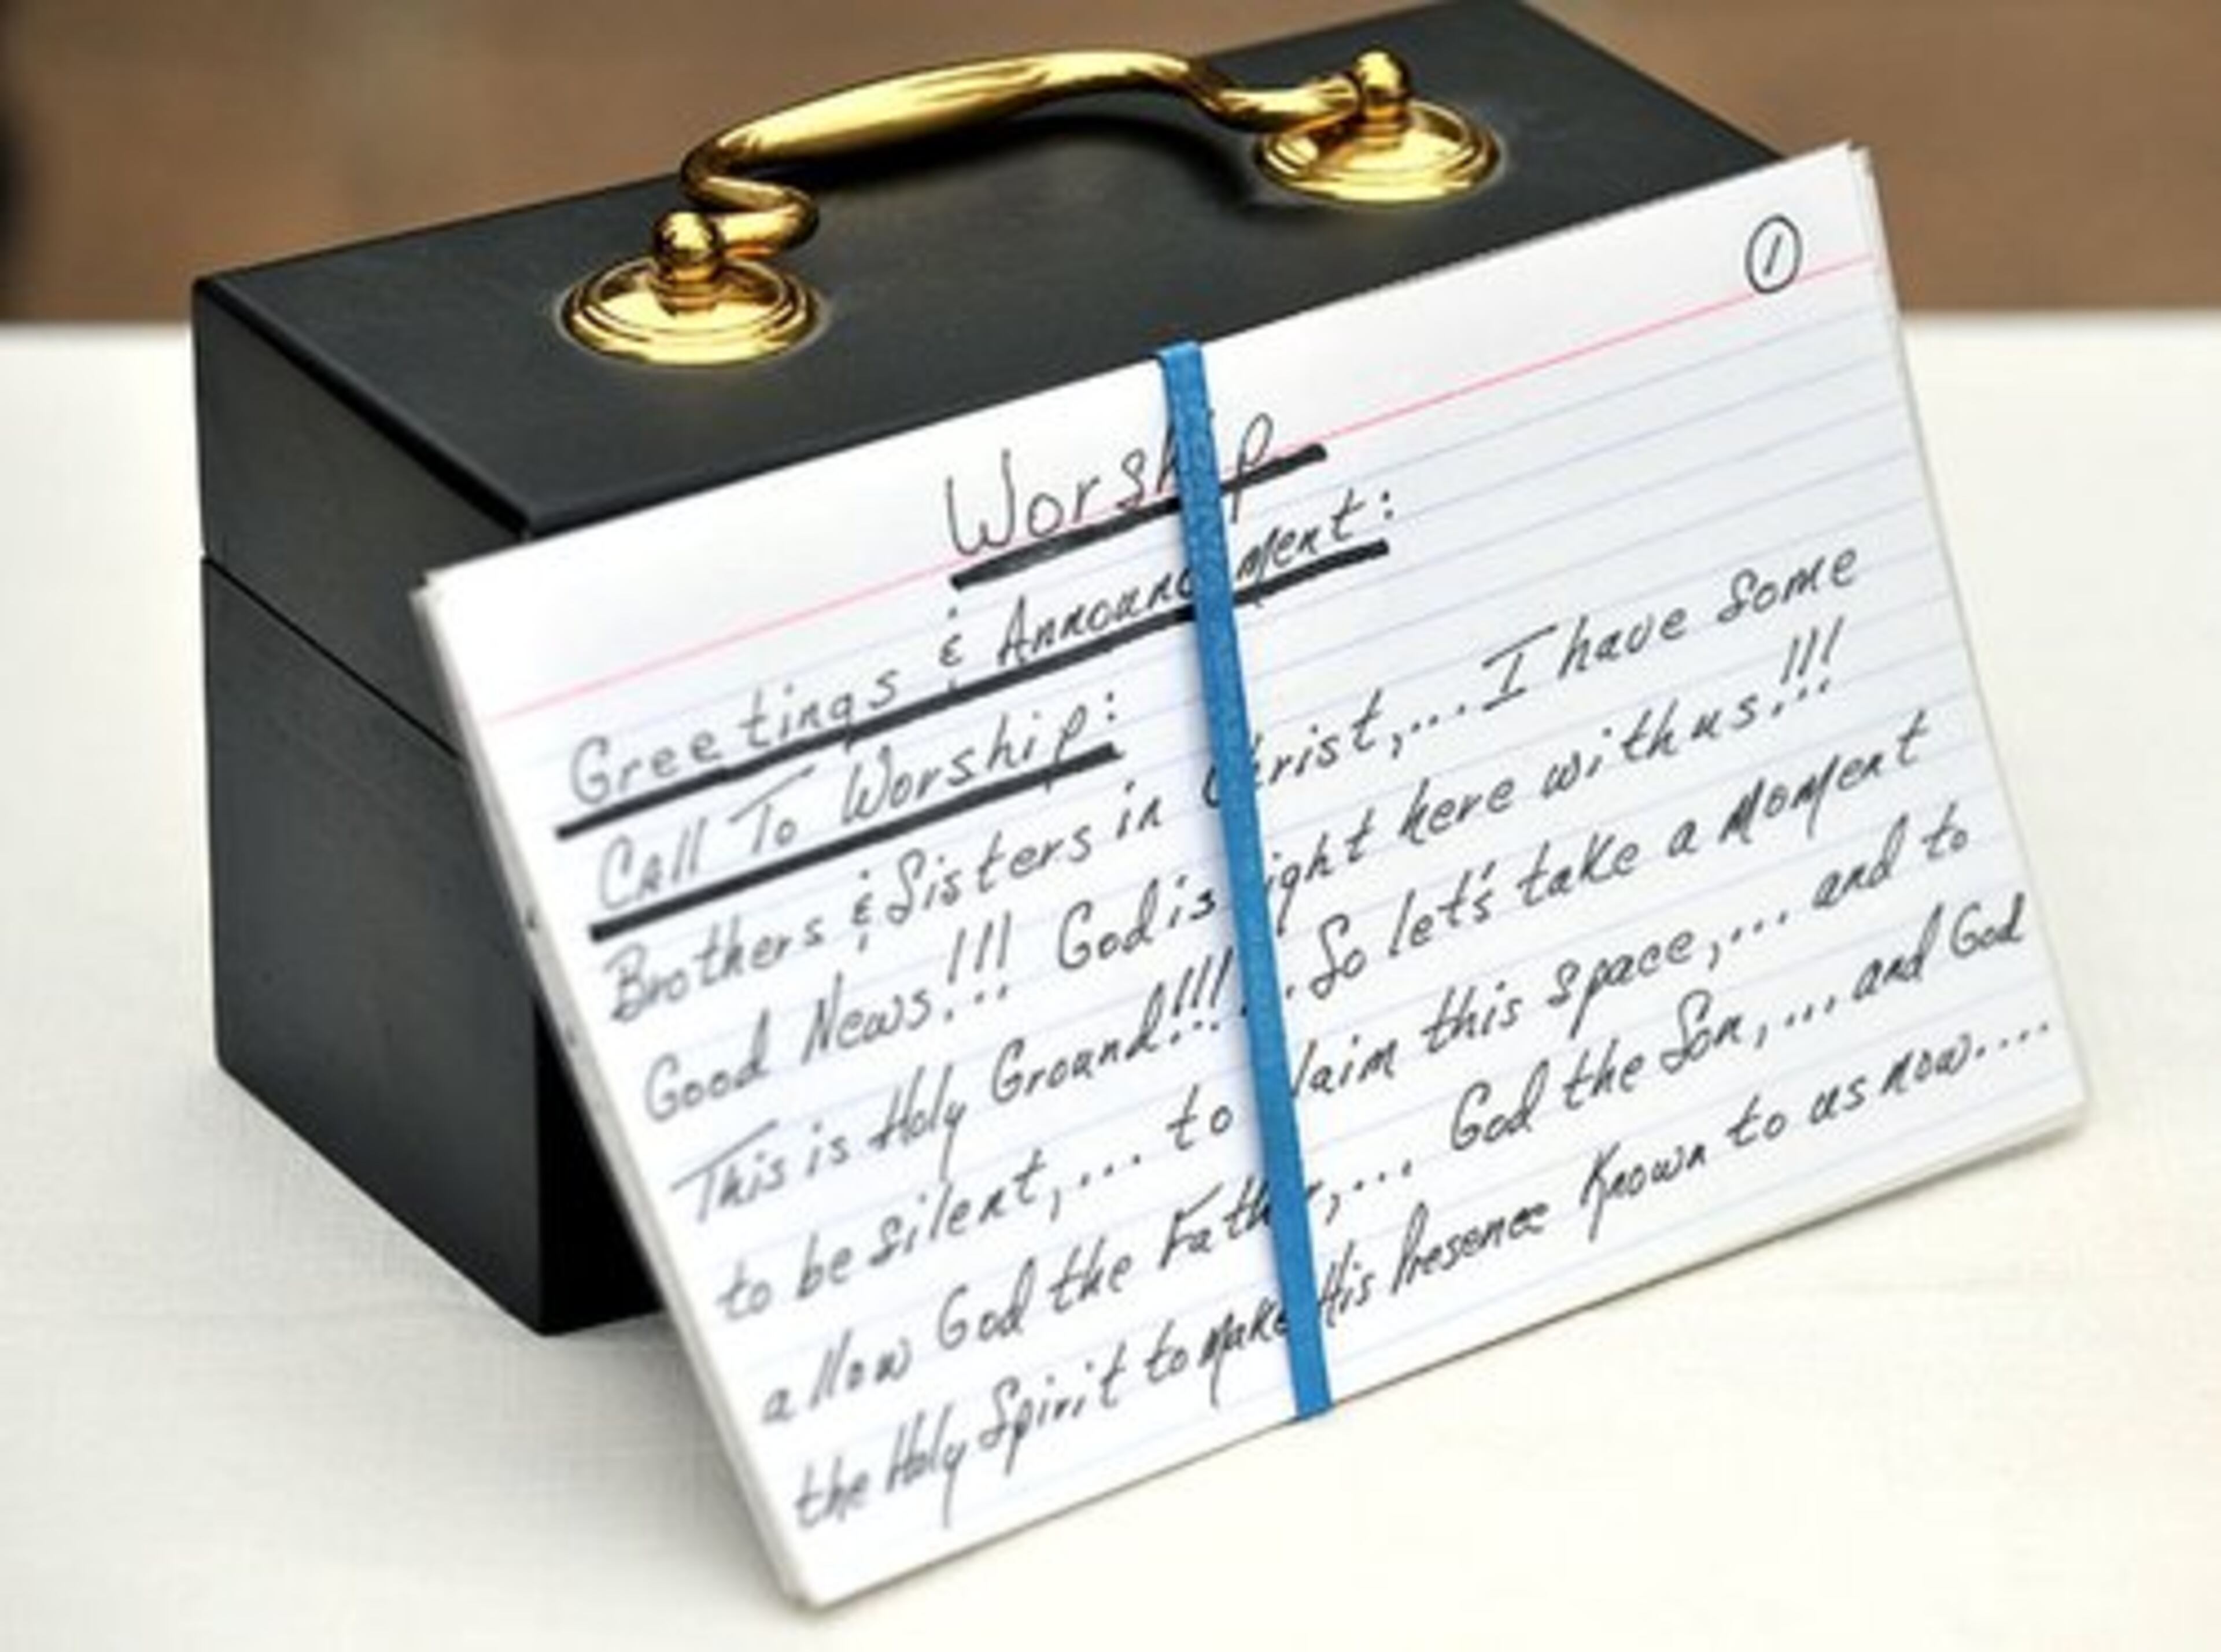 ①
Worship
Greetings & Announcement:
Call To Worship:
Brothers & Sisters in Christ,... I have Some
Good News!!!... God is right here with us!!!...
This is Holy Ground!!!... So let's take a Moment
to be silent,... to claim this space,... and to
allow God the Father,... God the Son,... and God
the Holy Spirit to make His Presence Known to us now....